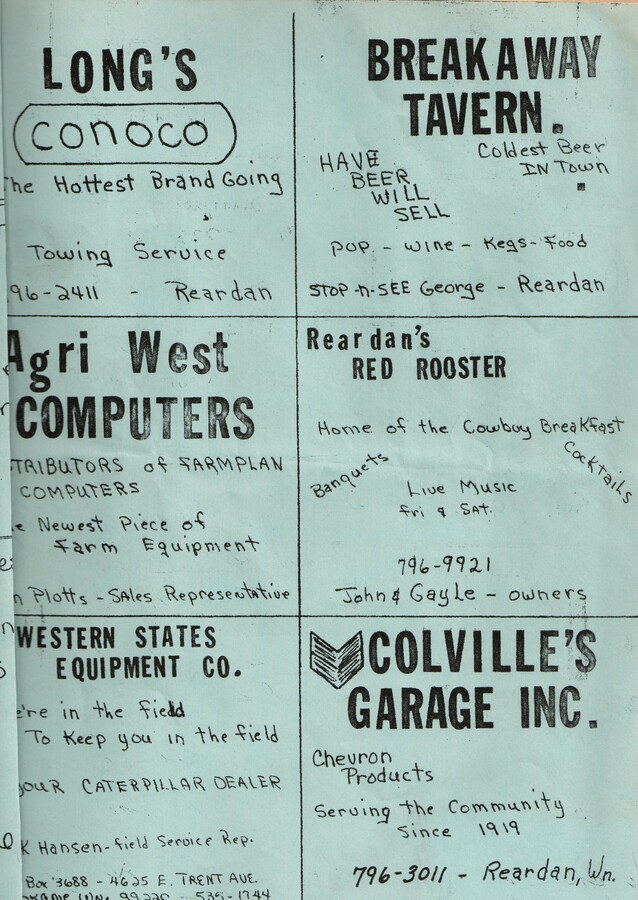 LONG'S
CONOCO
The Hottest Brand Going
Towing Service
96-2411 - Reardan
BREAKAWAY
TAVERN.
HAVE
BEER
WILL
SELL
Coldest Beer
IN Town
POP - Wine - Kegs - Food
STOP-n-SEE George - Reardan
Agri West
COMPUTERS
TRIBUTORS of FARMPLAN
COMPUTERS
e Newest Piece of
Farm Equipment
n Plotts - SAles Representative
Reardan's
RED ROOSTER
Home of the Cowboy Breakfast
Banquets
Cocktails
Live Music
Fri & SAT.
796-9921
John & Gayle - owners
WESTERN STATES
EQUIPMENT CO.
e're in the field
To Keep you in the field
your CATERPILLAR DEALER
K Hansen - field Service Rep.
Box 3688 - 4625 E. TRENT AVE.
KANE WN. 99220 - 535-1744
COLVILLE'S
GARAGE INC.
Chevron
Products
Serving the Community
Since 1919
796-3011 - Reardan, Wn.